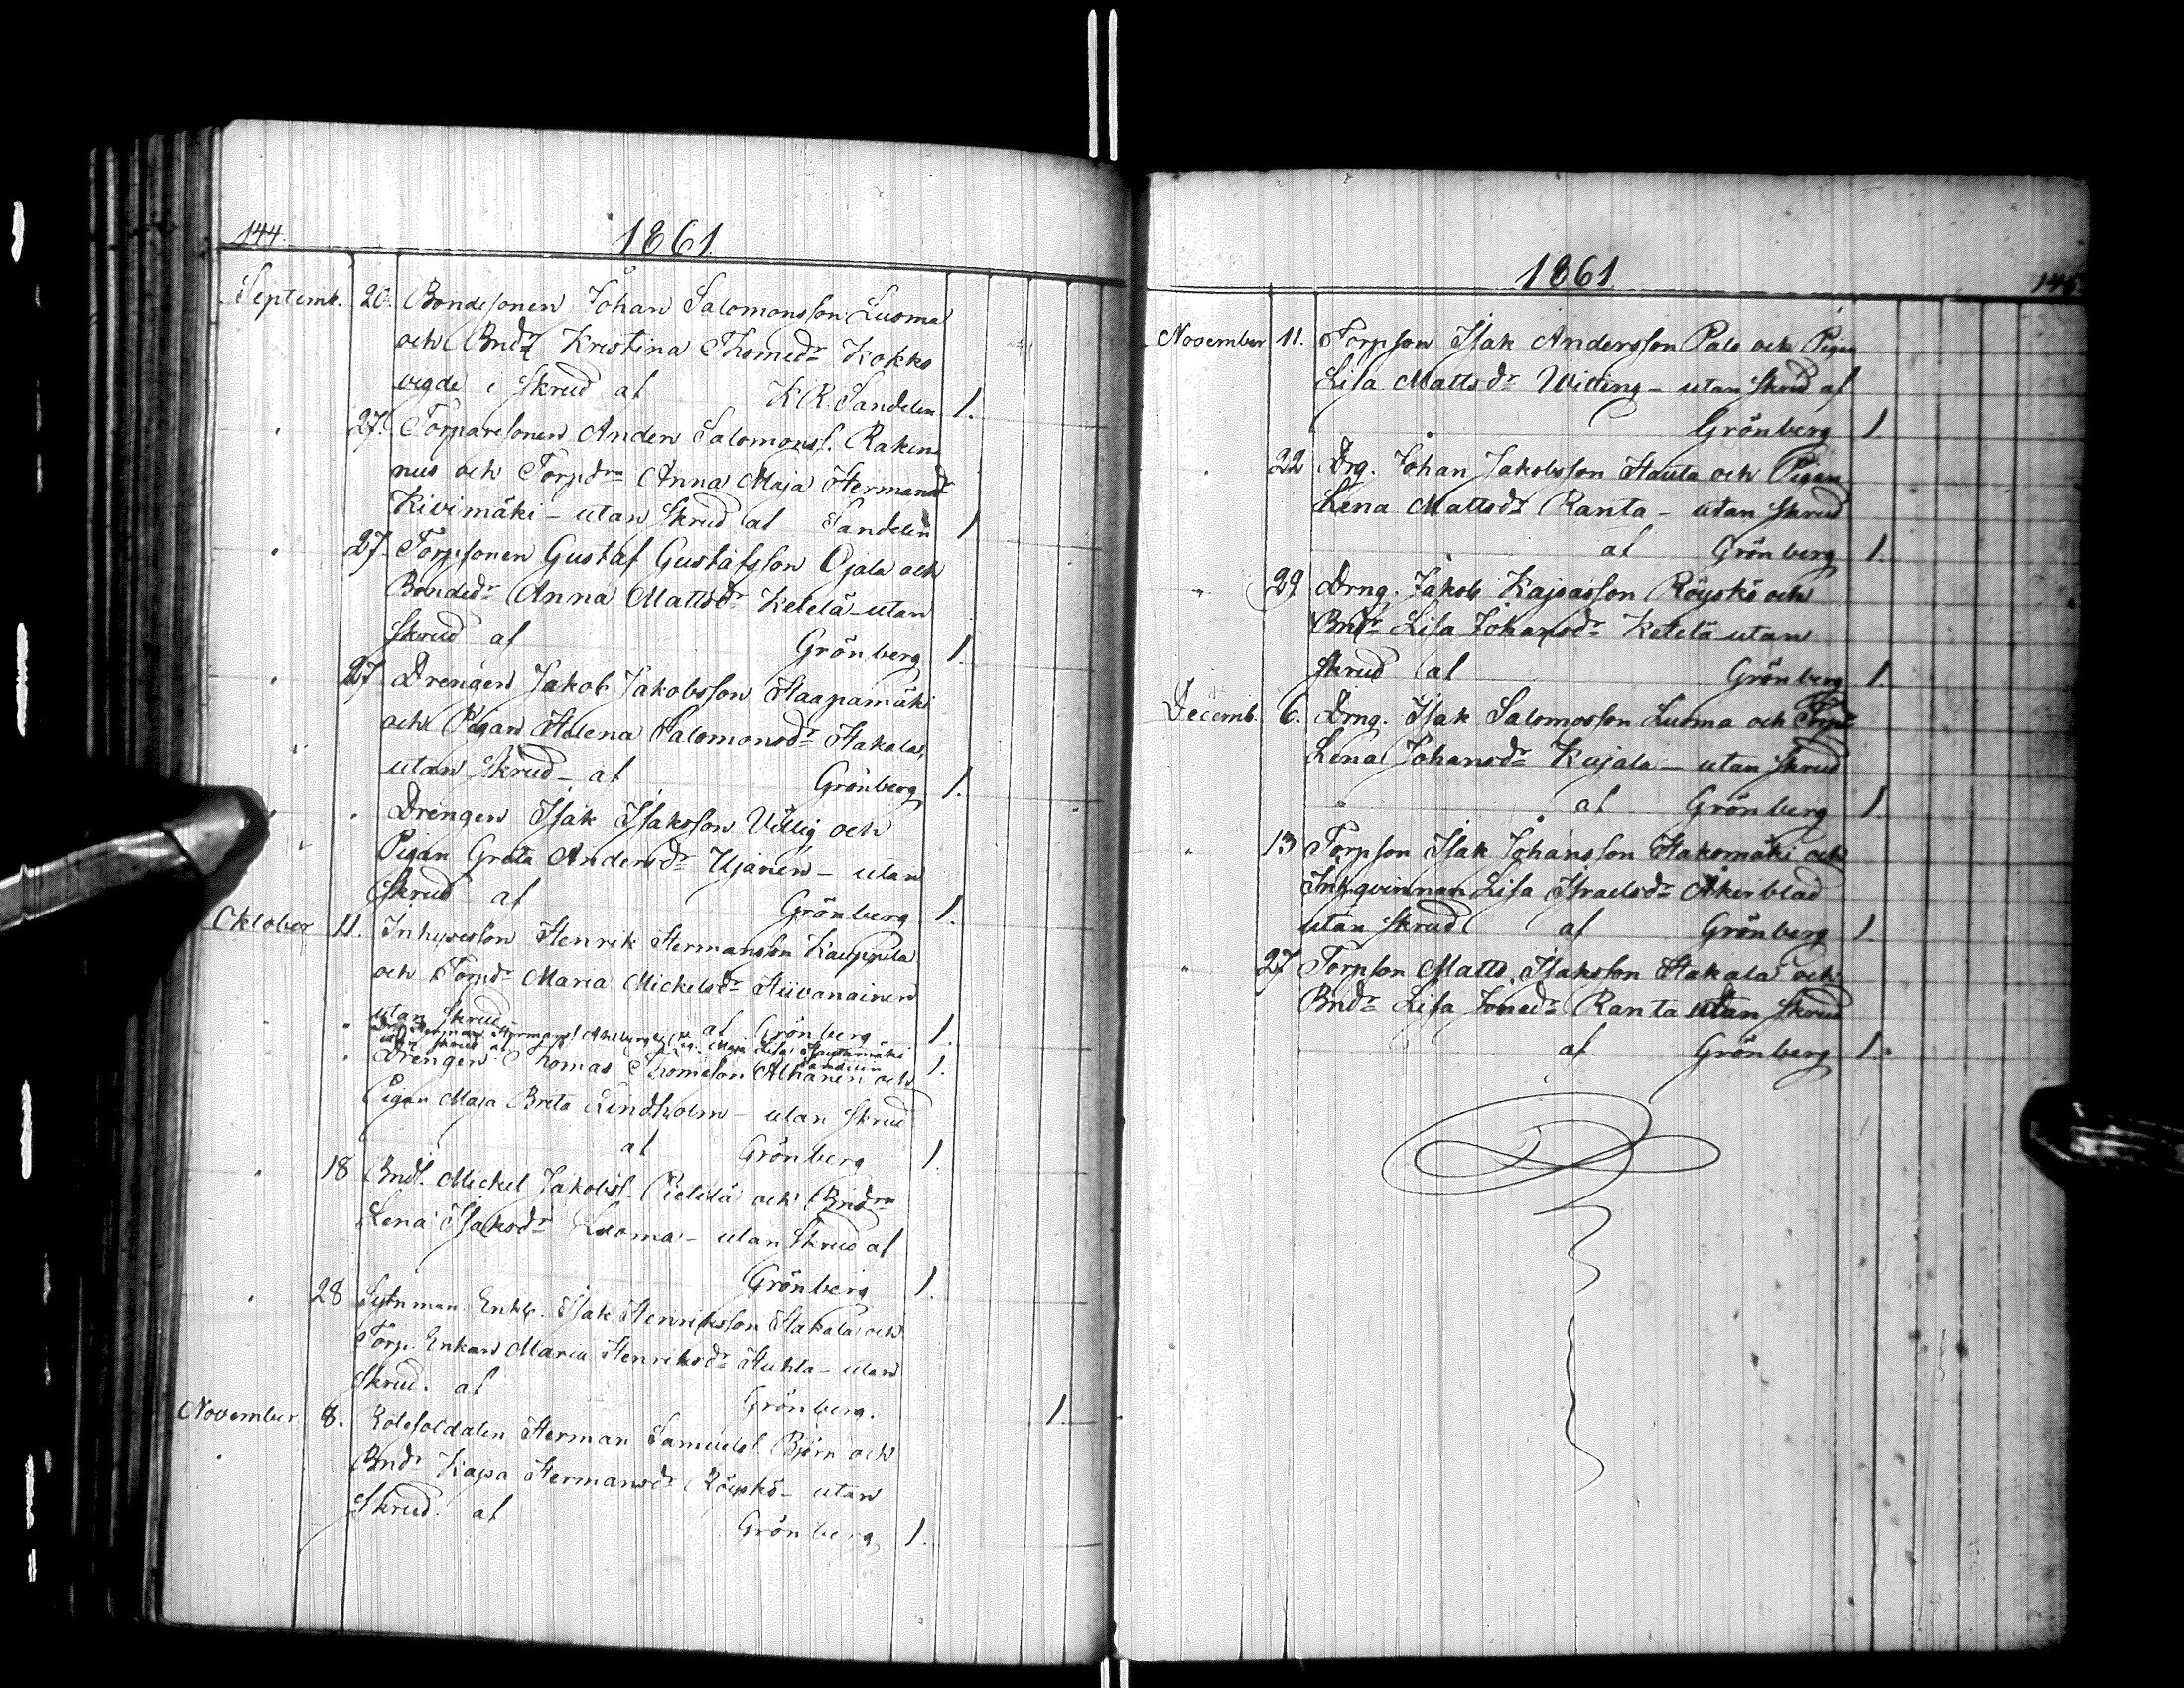 144.
1861.
Septemb. 20. Bondesonen Johan Salomonsson Luoma
och Bndr Kristina Thomedr Kokko
vigde i skrud af K R Sandelin 1.
27. Torparesonen Anders Salomonss. Raken-
nus och Torpdrn Anna Maja Hermansdr
Kivimäki - utan skrud af Sandelin 1
27. Torpsonen Gustaf Gustafsson Ojala och
Bondedr Anna Mattsdr Ketelä utan
skrud af Grönberg 1.
27 Drengen Jakob Jakobsson Haapamäki
och Pigan Helena Salomonsdr Hakala,
utan skrud - af Grönberg 1.
Drengen Isak Isaksson Villig och
Pigan Greta Andersdr Ujanen - utan
skrud af Grönberg 1.
Oktober 11. Inhysesson Henrik Hermansson Kauppila
och Torpdr Maria Mickelsdr Hiivanainen
utan skrud - af Grönberg 1.
Herman Hermans Maja Lisa Hautamäki
utan skrud af Sandelin 1.
Drengen Thomas Thomesson Alhanen och
Pigan Maja Brita Lindholm - utan skrud
af Grönberg 1.
18 Bnds. Mickel Jakobss. Pietilä och Bndrn
Lena Isaksdr Luoma - utan skrud af
Grönberg 1.
28 Sytnman Enkl. Isak Henriksson Hakala och
Torp. Enkan Maria Henriksdr Huhta - utan
skrud. af Grönberg. 1
November 8. Rotesoldaten Herman Samuelss Björn och
Bndr Kajsa Hermansdr Röyskö - utan
skrud. af Grönberg 1.
1861.
145
November 11. Torpson Isak Andersson Palo och Pigan
Lisa Mattsdr Witting - utan skrud af
Grönberg 1.
22 Drg. Johan Jakobsson Hauta och Pigan
Lena Mattsdr Ranta - utan skrud
af Grönberg 1.
29 Drng. Jakob Kajsasson Röyskö och
Bndr Lisa Johansdr Ketelä utan
skrud af Grönberg 1.
Decemb. 6. Drng. Isak Salomosson Luoma och Torpdr
Lena Johansdr Kujala - utan skrud
af Grönberg 1.
13 Torpson Isak Johansson Hakomäki och
Inhqvinnan Lisa Israelsdr Åkerblad
utan skrud af Grönberg 1
27 Torpson Matts Isaksson Hakala och
Bndr Lisa Jonedr Ranta utan skrud
af Grönberg 1.